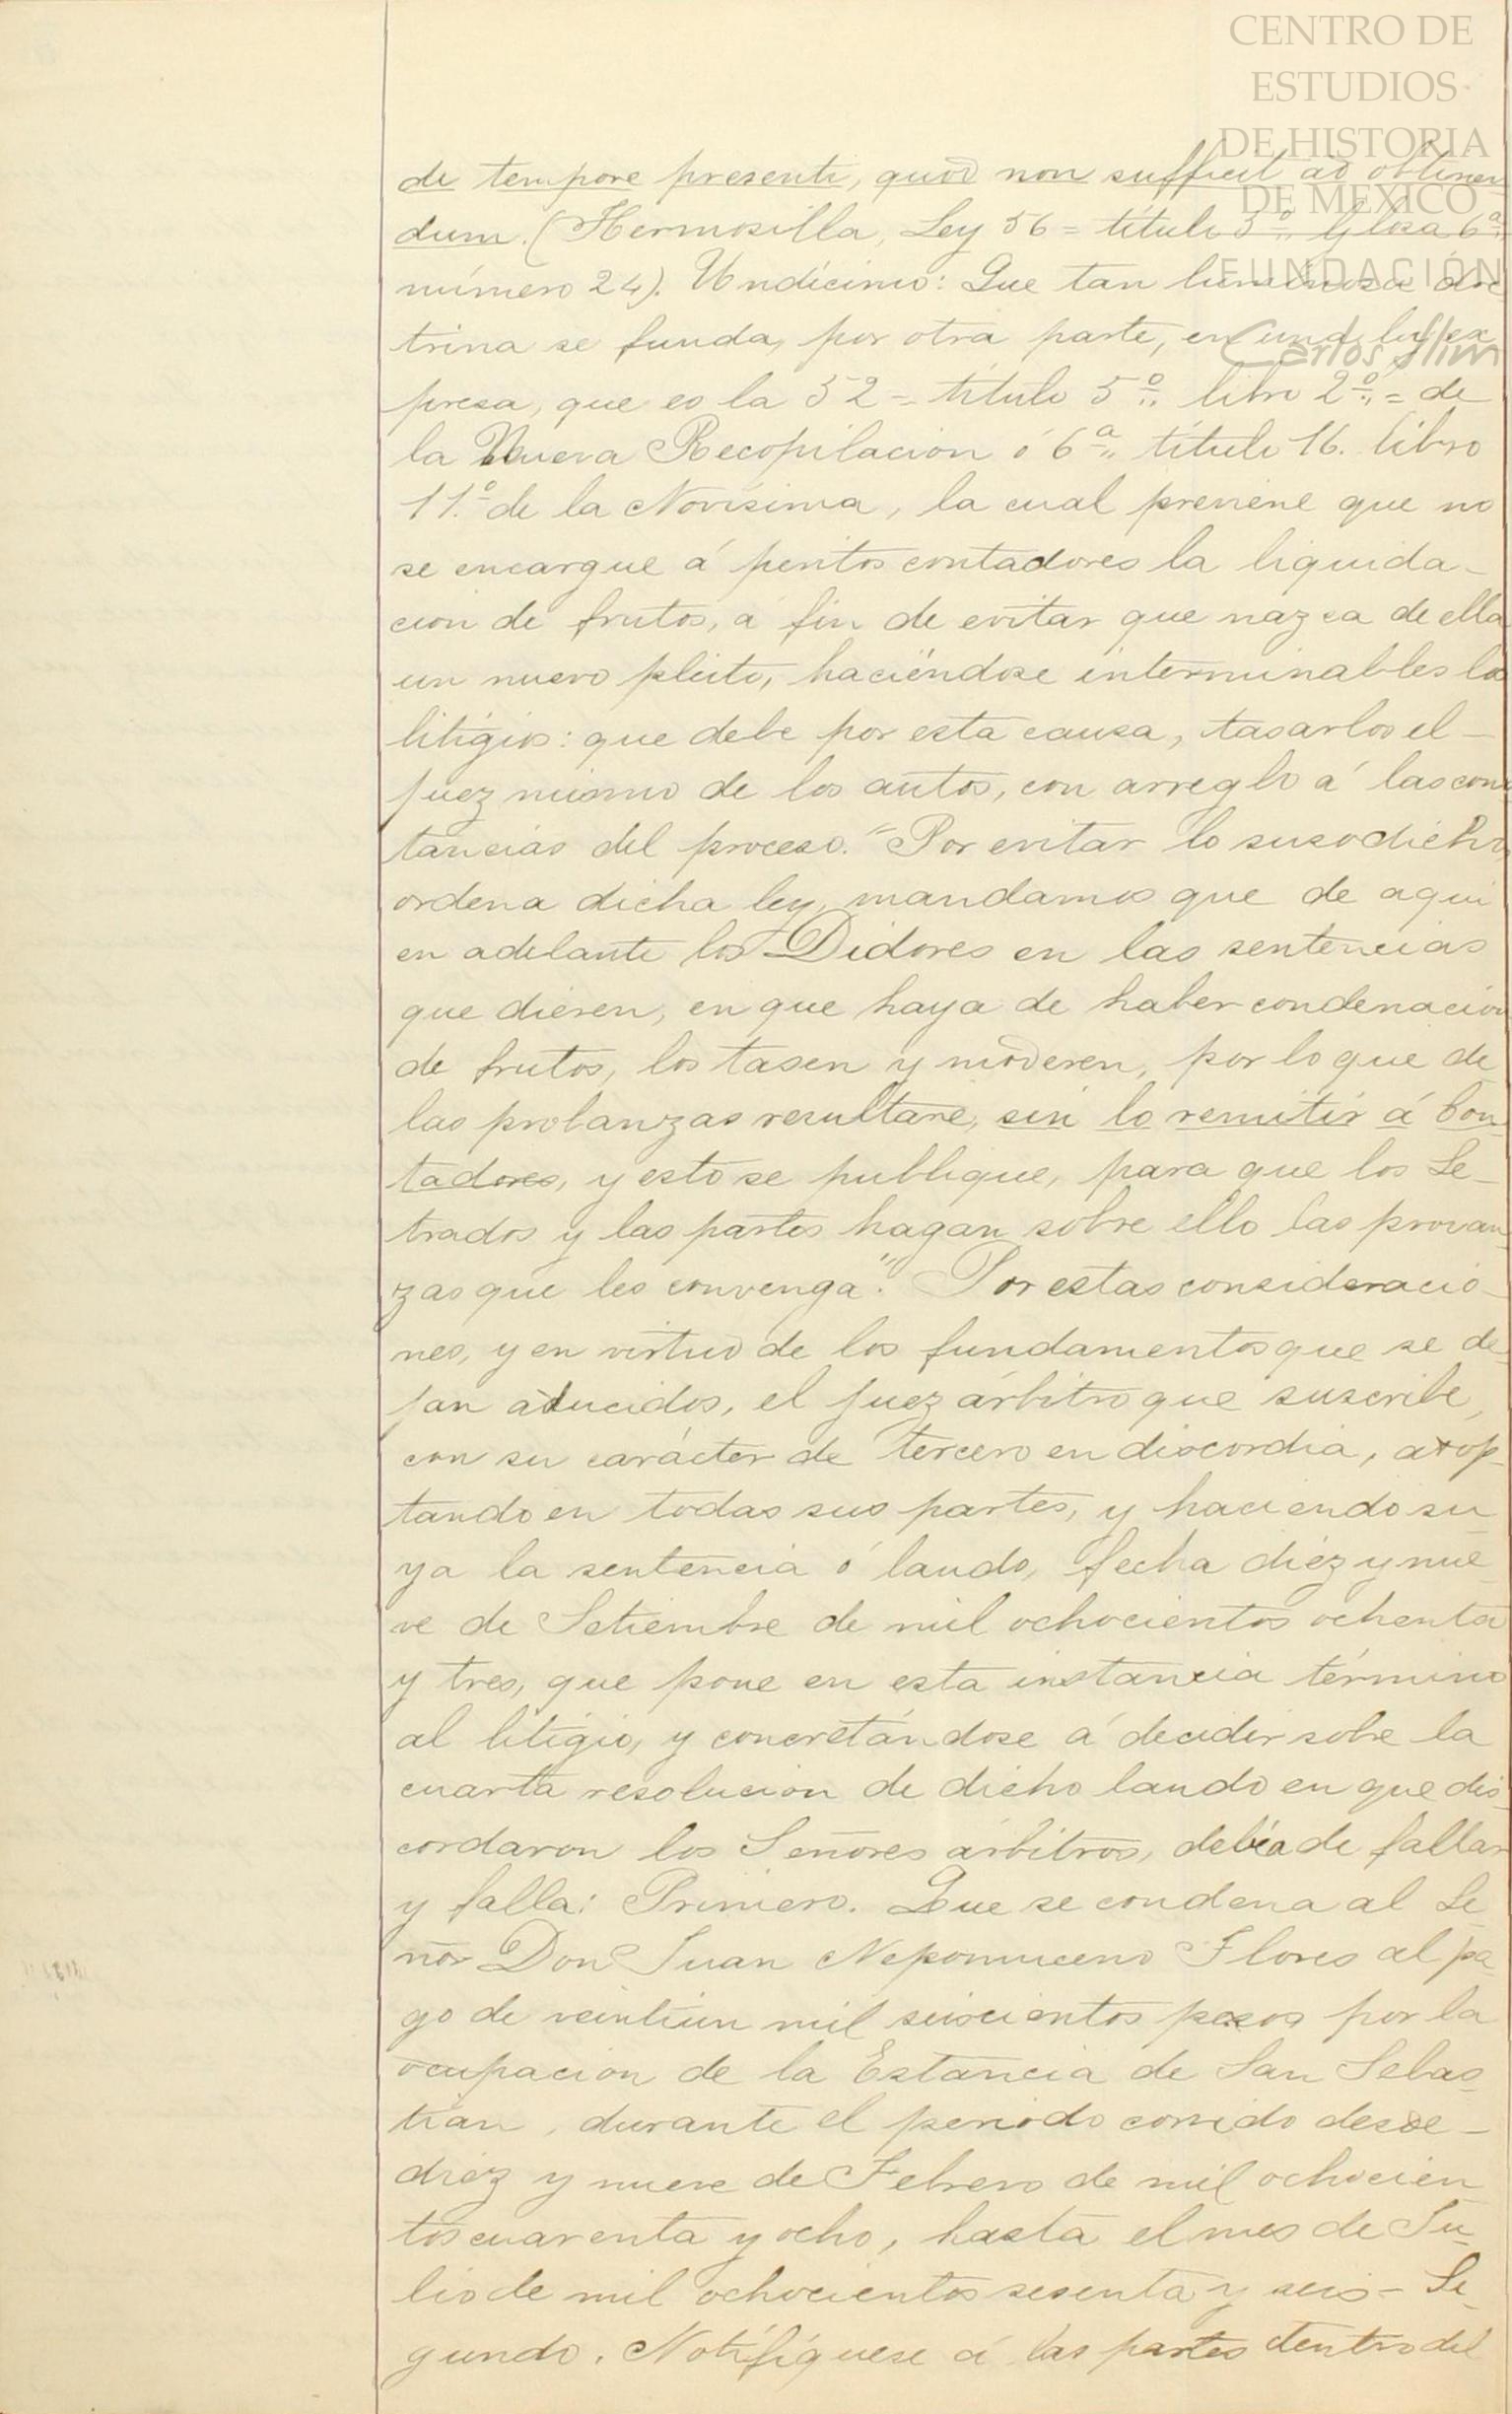 CENTRO DE
ESTUDIOS
DE HISTORIA
DE MEXICO
FUNDACIÓN
Carlos Slim
de tempore presenti, quod non sufficit ad obtinen
dum. (Hermosilla, Ley 56 = título 5º,, Glosa 6ª,,
número 24). Undécimo: Que tan luminosa doc
trina se funda, por otra parte, en una ley ex
presa, que es la 52 = título 5º,, libro 2º,, = de
la Nueva Recopilación ó 6ª,, título 16. libro
11.º de la Novísima, la cual previene que no
se encargue á peritos contadores la liquida-
cion de frutos, a fin de evitar que nazca de ella
un nuevo pleito, haciéndose interminables los
litigios: que debe por esta causa, tasarlos el -
juez mismo de los autos, con arreglo á las cons
tancias del proceso. "Por evitar lo susodicho,
ordena dicha ley, mandamos que de aqui
en adelante los Oidores en las sentencias
que dieren, en que haya de haber condenación
de frutos, los tasen y moderen, por lo que de
las probanzas resultare, sin lo remitir á Con-
tadores, y esto se publique, para que los Le-
trados y las partes hagan sobre ello las provan
zas que les convenga". Por estas consideracio-
nes, y en virtud de los fundamentos que se de-
jan aducidos, el juez árbitro que suscribe,
con su carácter de tercero en discordia, adop-
tando en todas sus partes, y haciendo su-
ya la sentencia ó laudo, fecha diez y nue-
ve de Setiembre de mil ochocientos ochenta
y tres, que pone en esta instancia término
al litigio, y concretándose á decidir sobre la
cuarta resolución de dicho laudo en que dis-
cordaron los Señores árbitros, debía de fallar
y falla: Primero. Que se condena al Se-
ñor Don Juan Nepomuceno Flores al pa-
go de veintiun mil seiscientos pesos por la
ocupación de la Estancia de San Sebas-
tian, durante el periodo corrido desde -
diez y nueve de Febrero de mil ochocien-
tos cuarenta y ocho, hasta el mes de Ju-
lio de mil ochocientos sesenta y seis - Se-
gundo. Notifíquese á las partes dentro del